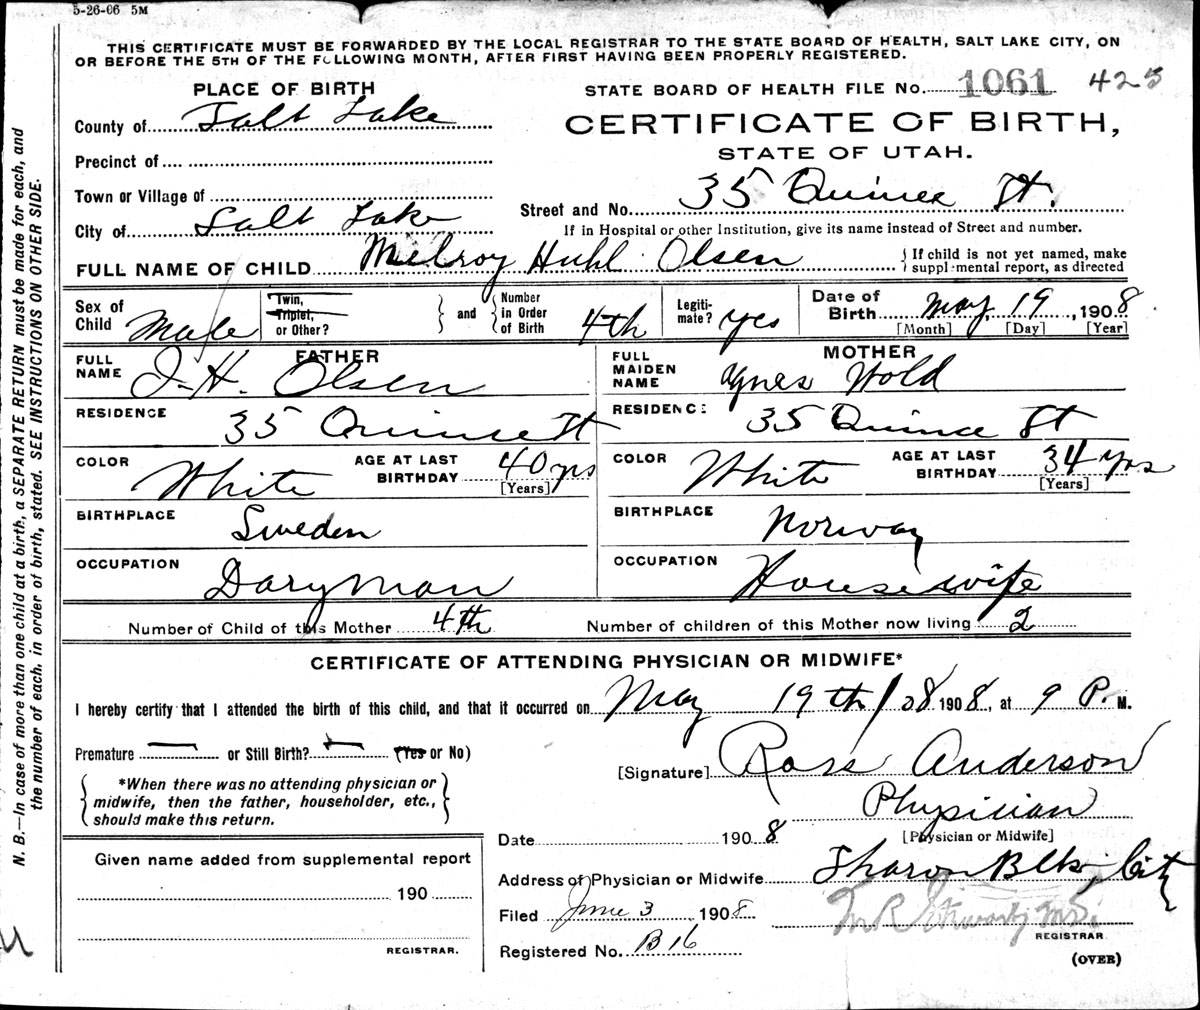 5-26-06 5M
THIS CERTIFICATE MUST BE FORWARDED BY THE LOCAL REGISTRAR TO THE STATE BOARD OF HEALTH, SALT LAKE CITY, ON
OR BEFORE THE 5TH OF THE FOLLOWING MONTH, AFTER FIRST HAVING BEEN PROPERLY REGISTERED.
PLACE OF BIRTH
STATE BOARD OF HEALTH FILE No. 1061 425
County of Salt Lake
CERTIFICATE OF BIRTH,
Precinct of
STATE OF UTAH.
Town or Village of
Street and No. 35 Quince St.
City of Salt Lake
If in Hospital or other Institution, give its name instead of Street and number.
FULL NAME OF CHILD Melroy Huhl Olsen
If child is not yet named, make
supplemental report, as directed
Sex of Child Male
Twin, Triplet, or Other?
and
Number in Order of Birth 4th
Legitimate? yes
Date of Birth May 19, 1908
[Month] [Day] [Year]
FATHER
FULL NAME J-H. Olsen
MOTHER
FULL MAIDEN NAME Agnes Wold
RESIDENCE 35 Quince St
RESIDENCE 35 Quince St
COLOR White AGE AT LAST BIRTHDAY 40 yrs [Years]
COLOR White AGE AT LAST BIRTHDAY 34 yrs [Years]
BIRTHPLACE Sweden
BIRTHPLACE Norway
OCCUPATION Daryman
OCCUPATION Housewife
Number of Child of this Mother 4th
Number of children of this Mother now living 2
CERTIFICATE OF ATTENDING PHYSICIAN OR MIDWIFE*
I hereby certify that I attended the birth of this child, and that it occurred on May 19th /08 1908, at 9 P. M.
Premature — or Still Birth? (Yes or No)
[Signature] Rose Anderson
*When there was no attending physician or
midwife, then the father, householder, etc.,
should make this return.
Physician
[Physician or Midwife]
Date 1908
Given name added from supplemental report
190
REGISTRAR.
Address of Physician or Midwife Sharon Blk, City
Filed June 3 1908
REGISTRAR
Registered No. B 16
(OVER)
N. B.—In case of more than one child at a birth, a SEPARATE RETURN must be made for each, and
the number of each, in order of birth, stated. SEE INSTRUCTIONS ON OTHER SIDE.